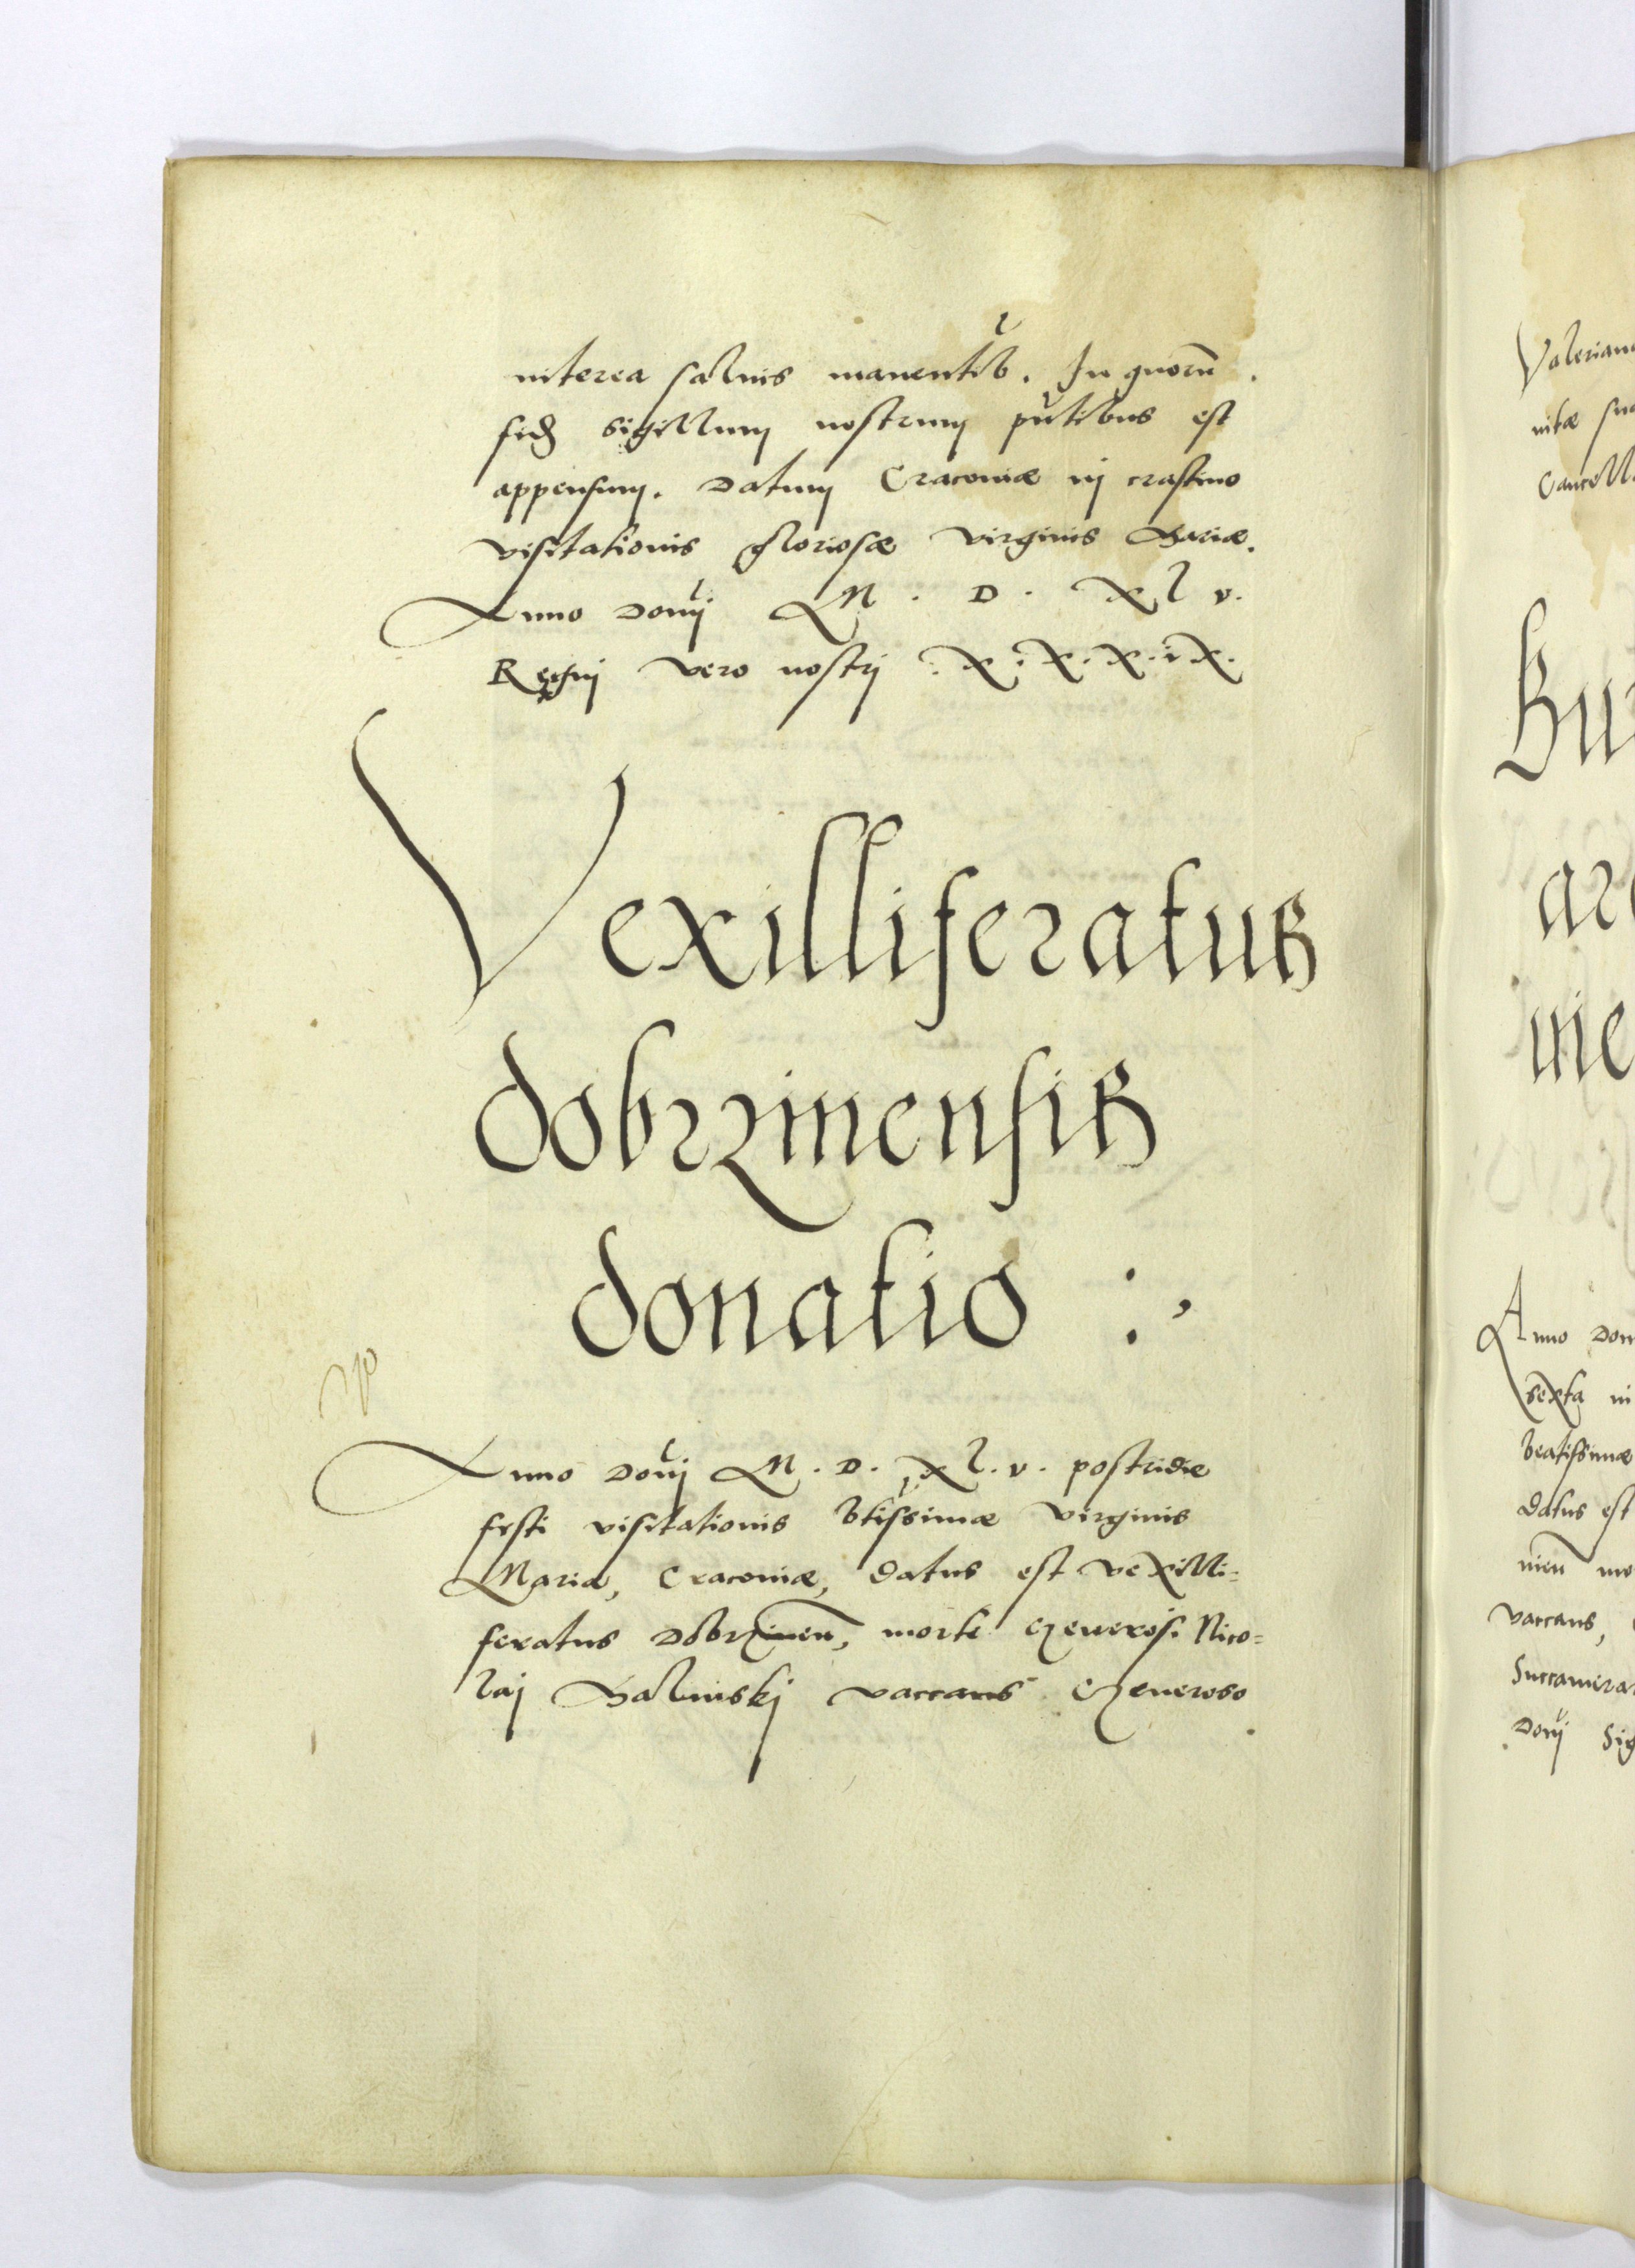 interea saluis manentib. In quorũ
fidẽ sigillum nostrum pñtibus est
appensum. Datum Cracouiæ in crastino
visitationis gloriosæ virginis Mariæ.
Anno Domĩ M. D. xl v.
Regni vero nostri . X. X. X. i X.
Vexilliferatus
dobrzinensis
donatio :,
Anno Domĩ M. D. xl. v. postridie
festi visitationis btissimæ virginis
Mariæ, Cracouiæ, datus est vexilli=
feratus Dobrzineñ, morte Generosi Nico=
laj vaccans Generoso
Valerian
nitæ su
Cancell
ar
nie
Anno Dom
sexta in
beatissimæ
datus est
nieñ mo
vaccans,
Succamera
Domĩ Sig